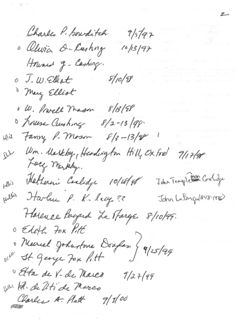 2
Charles P. Bowditch 9/7/97
o Olivia D. Cushing 10/13/97
Howard G. Cushing
o J. W. Elliot 8/10/98
o Mary Elliot
o W. Powell Mason 8/13/98
o Louise Cushing 8/2-13/98
Fanny P. Mason 8/1-13/98
Wm. Markby, Headington Hill, Oxford 9/17/98
Lucy Markby.
Katharine Coolidge 10/6/98 John Temple Coolidge
Florence Bayard La Farge 8/10/99.
o Edith Fox Pitt
o Muriel Johnstone Douglas
9/15/99
St George Fox Pitt
o Etta de V. de Marco 9/27/99
de Viti de Marco
Charles A. Platt 9/3/00